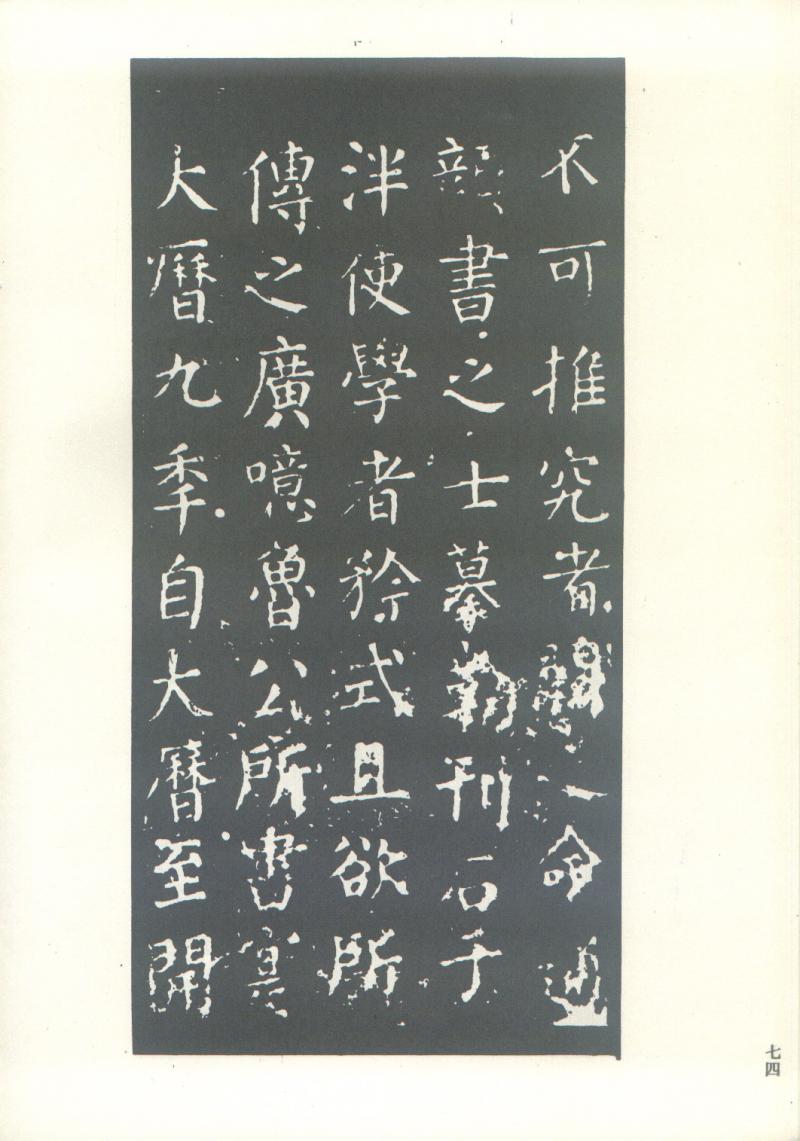 不可推究者□一命通
顔書之士摹勒刊石于
泮使學者矜式且欲所
傳之廣噫魯公所書寔
大曆九季自大曆至開
七四